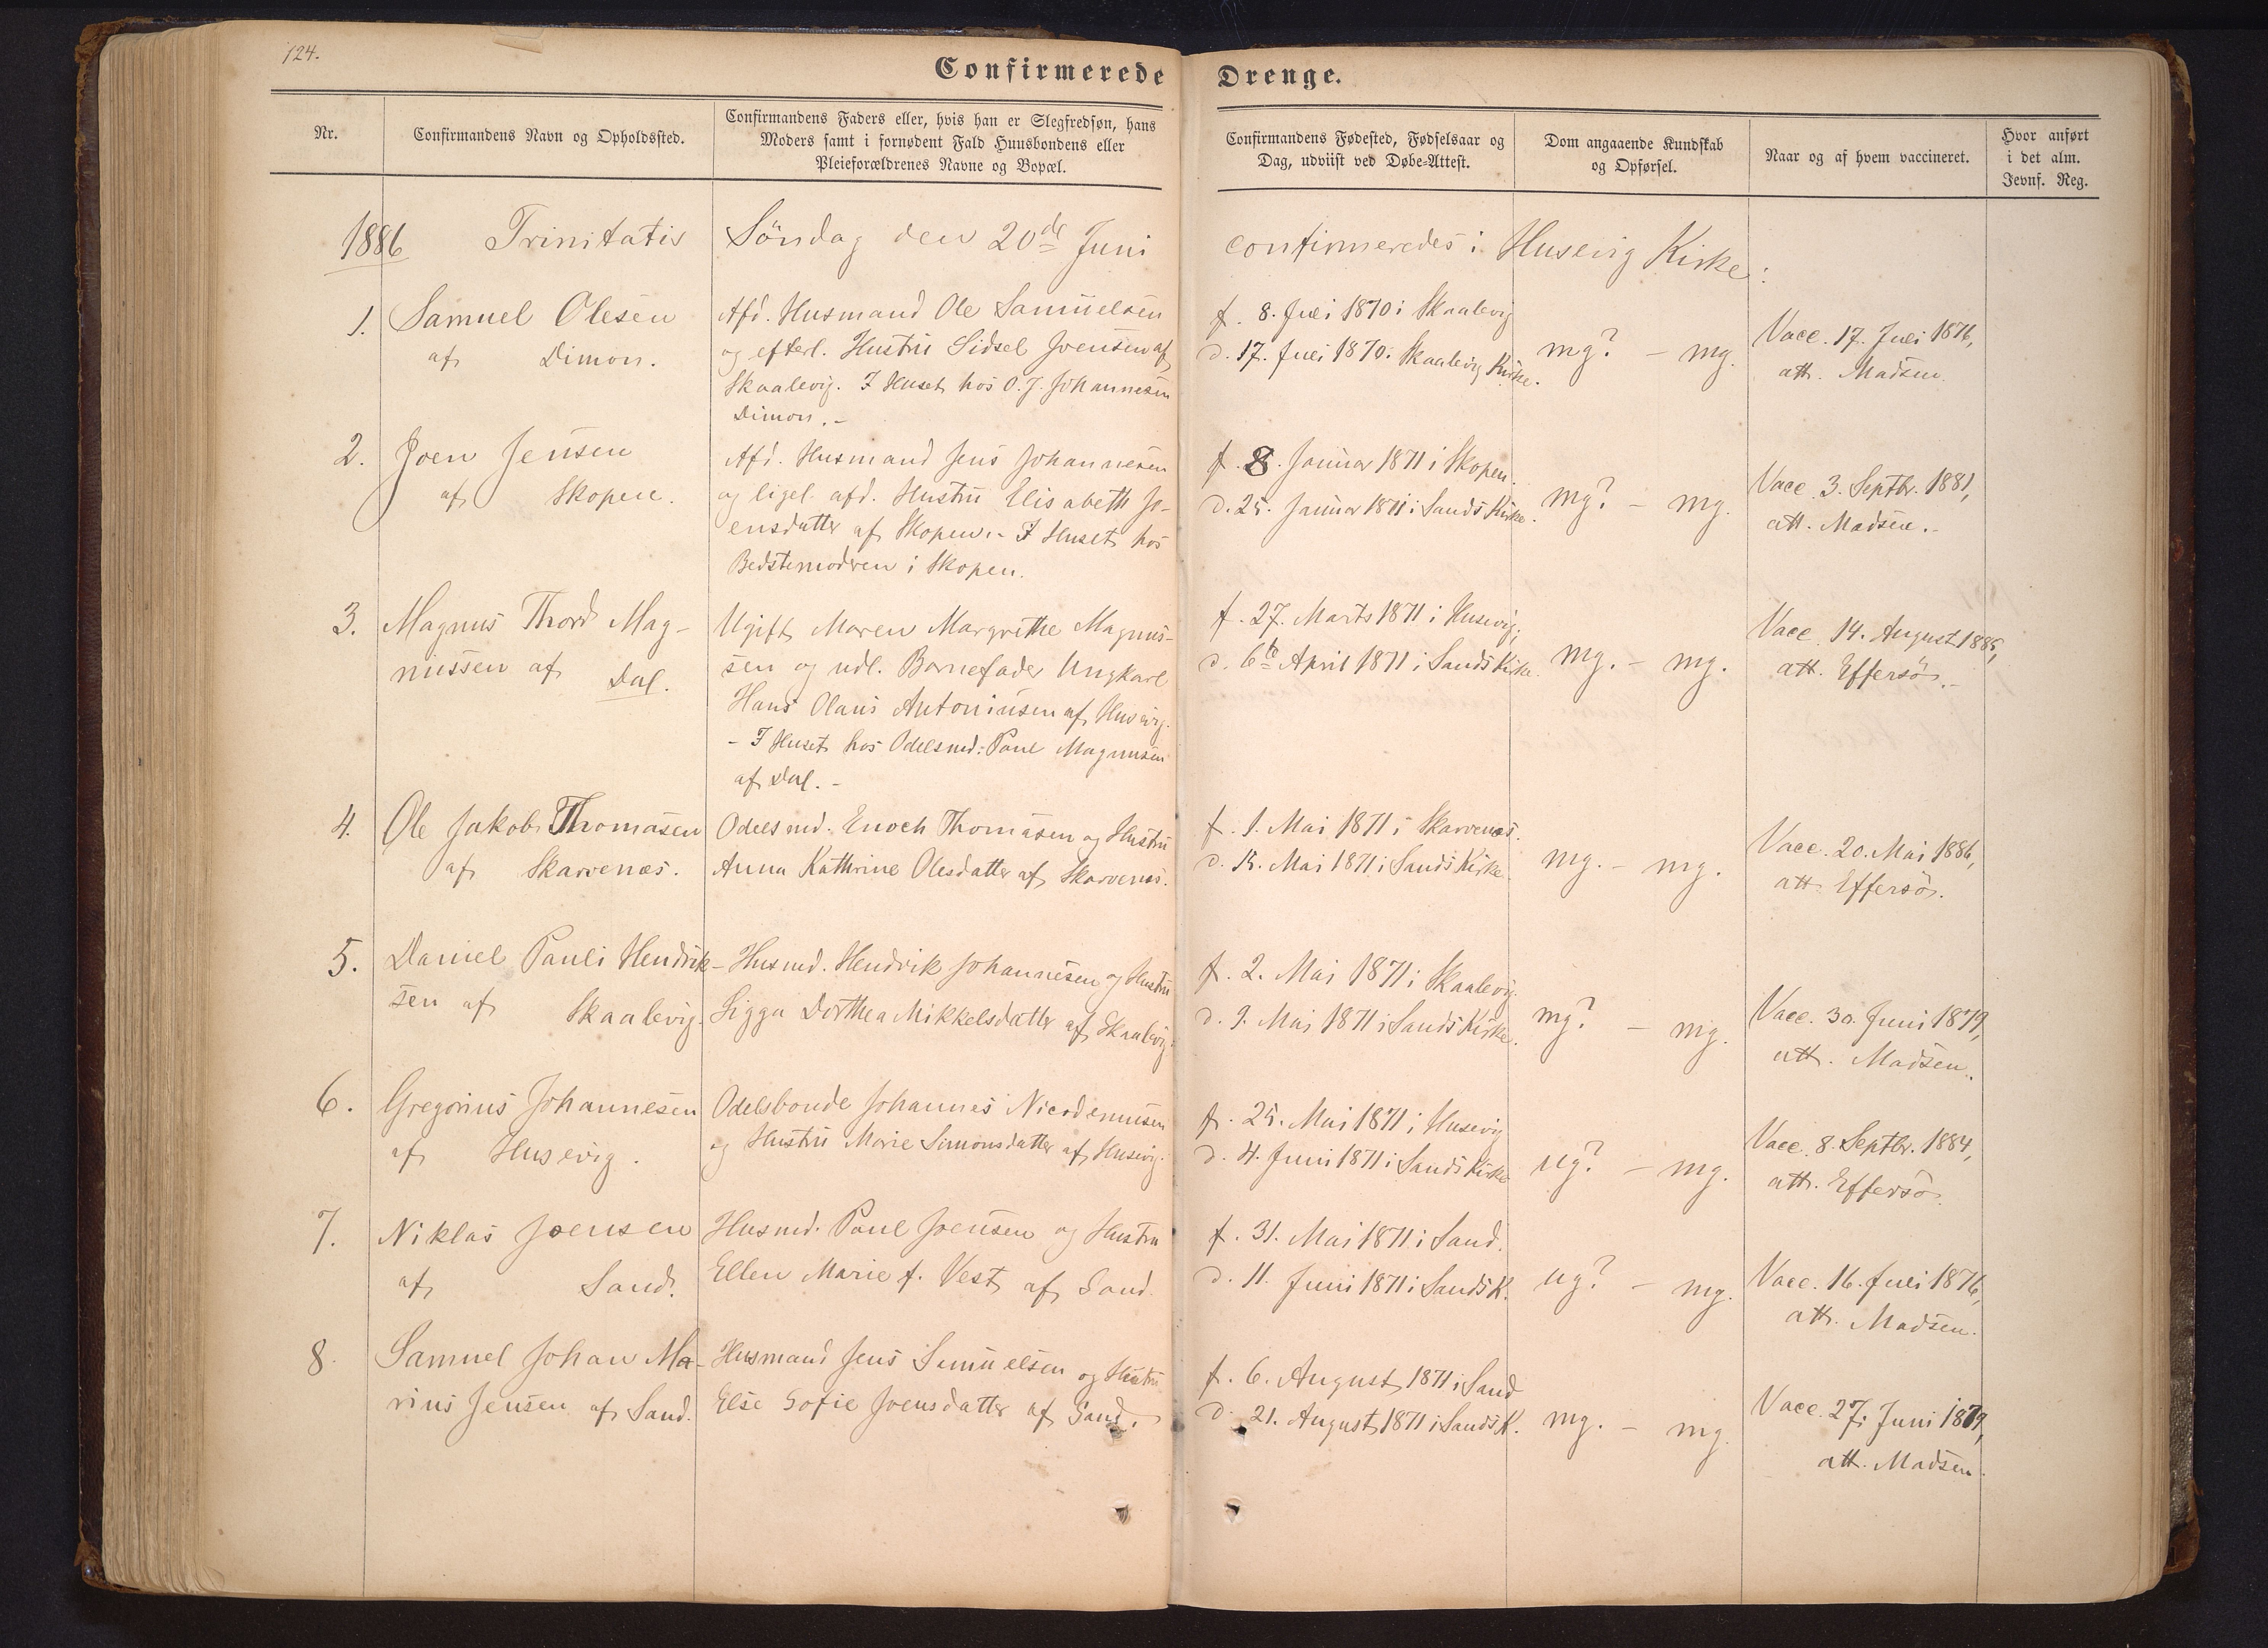 124.
Confirmerede Drenge.
Nr.
Confirmandens Navn og Opholdssted.
Confirmandens Faders eller, hvis han er Slegfredsøn, hans
Moders samt i fornødent Fald Huusbondens eller
Pleieforældrenes Navne og Bopæl.
Confirmandens Fødested, Fødselsaar og
Dag, udviist ved Døbe-Attest.
Dom angaaende Kundskab
og Opførsel.
Naar og af hvem vaccineret.
Hvor anført
i det alm.
Jevnf. Reg.
1886 Trinitatis Søndag den 20de Juni confirmeredes i Husevig Kirke:
1.
Samuel Olesen
af Dimon.
Afd. Husmand Ole Samuelsen
og efterl. Hustru Sidsel Joensen af
Skaalevig. I Huset hos O. J. Johannesen
Dimon. -
f. 8. Juli 1870 i Skaalevig
d. 17. Juli 1870 i Skaalevig Kirke.
mg? - mg.
Vacc. 17. Juli 1876,
att. Madsen.
2.
Joen Jensen
af Skopen.
Afd. Husmand Jens Johannesen
og ligel. afd. Hustru Elisabeth Jo-
ensdatter af Skopen. - I Huset hos
Bedstemoderen i Skopen.
f. 8. Januar 1871 i Skopen.
d. 25. Januar 1871 i Sands Kirke.
mg? - mg.
Vacc. 3. Septbr. 1881,
att. Madsen. -
3.
Magnus Thord Mag-
nussen af Dal.
Ugift Maren Margrethe Magnus-
sen og udl. Barnefader Ungkarl
Hans Olaus Antoniusen af Husevig.
- I Huset hos Odelsmd: Poul Magnusen
af Dal. -
f. 27. Marts 1871 i Husevig;
d. 6te April 1871 i Sands Kirke.
mg. - mg.
Vacc. 14. August 1885,
att. Effersö. -
4.
Ole Jakob Thomasen
af Skarvenæs.
Odelsmd. Enoch Thomasen og Hustru
Anna Kathrine Olesdatter af Skarvenæs.
f. 1. Mai 1871 i Skarvenæs.
d. 15. Mai 1871 i Sands Kirke.
mg. - mg.
Vacc. 20. Mai 1886,
att. Effersö.
5.
Daniel Pauli Hendrik-
sen af Skaalevig.
Husmd. Hendrik Johannesen og Hustru
Sigga Dorthea Mikkelsdatter af Skaalevig.
f. 2. Mai 1871 i Skaalevig.
d. 9. Mai 1871 i Sands Kirke.
mg? - mg.
Vacc. 30. Juni 1879,
att. Madsen.
6.
Gregorius Johannesen
af Husevig.
Odelsbonde Johannes Nicodemusen
og Hustru Marie Simonsdatter af Husevig.
f. 25. Mai 1871 i Husevig
d. 4. Juni 1871 i Sands Kirke
ug? - mg.
Vacc. 8. Septbr. 1884,
att. Effersö.
7.
Niklas Joensen
af Sand.
Husmd. Poul Joensen og Hustru
Ellen Marie f. Vest af Sand.
f. 31. Mai 1871 i Sand.
d. 11. Juni 1871 i Sands K.
ug? - mg.
Vacc. 16. Juli 1876,
att. Madsen.
8.
Samuel Johan Ma-
rius Jensen af Sand.
Husmand Jens Samuelsen og Hustru
Else Sofie Joensdatter af Sand.
f. 6. August 1871 i Sand
d. 21. August 1871 i Sands K.
mg. - mg.
Vacc. 27. Juni 1879,
att. Madsen.